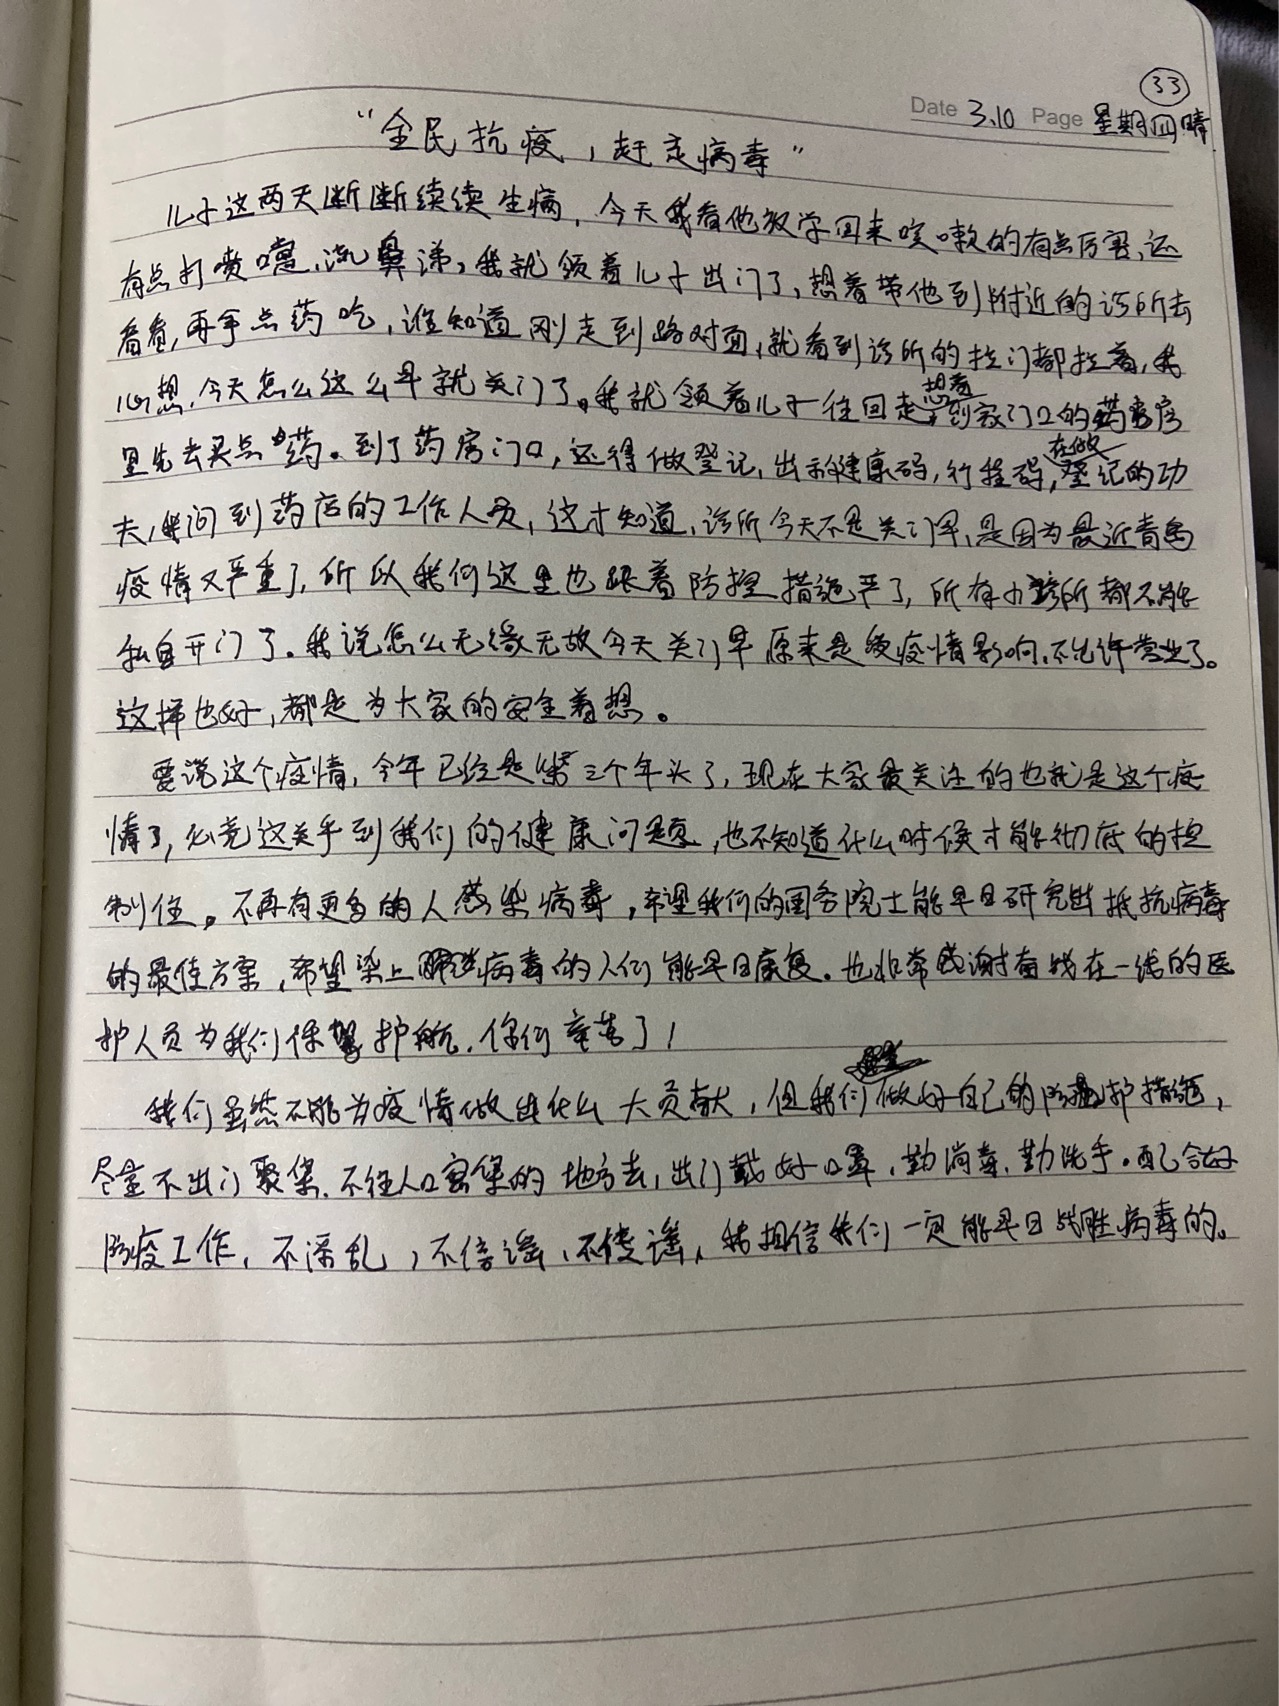 33
Date 3.10 Page 星期四 晴
“全民抗疫，赶走病毒”
儿子这两天断断续续生病，今天我看他放学回来咳嗽的有点厉害，还
有点打喷嚏、流鼻涕，我就领着儿子出门了，想着带他到附近的诊所去
看看，再拿点药吃，谁知道刚走到路对面，就看到诊所的拉门都拉着，我
心想，今天怎么这么早就关门了。我就领着儿子往回走，想着到家门口的药房
里先去买点药。到了药房门口，还得做登记，出示健康码，行程码，在做登记的功
夫，我问到药店的工作人员，这才知道，诊所今天不是关门早，是因为最近青岛
疫情又严重了，所以我们这里也跟着防控措施严了，所有小诊所都不能
私自开门了。我说怎么无缘无故今天关门早原来是受疫情影响，不允许营业了。
这样也好，都是为大家的安全着想。
要说这个疫情，今年已经是第三个年头了，现在大家最关注的也就是这个疫
情了，必竟这关乎到我们的健康问题，也不知道什么时候才能彻底的控
制住。不再有更多的人感染病毒，希望我们的国务院士能早日研究出抵抗病毒
的最佳方案，希望染上病毒的人们能早日康复。也非常感谢奋战在一线的医
护人员为我们保驾护航，你们辛苦了！
我们虽然不能为疫情做出什么大贡献，但我们做好自己的防护措施，
尽量不出门聚集，不往人口密集的地方去，出门戴好口罩，勤消毒，勤洗手。配合好
防疫工作，不添乱，不信谣，不传谣，我相信我们一定能早日战胜病毒的。